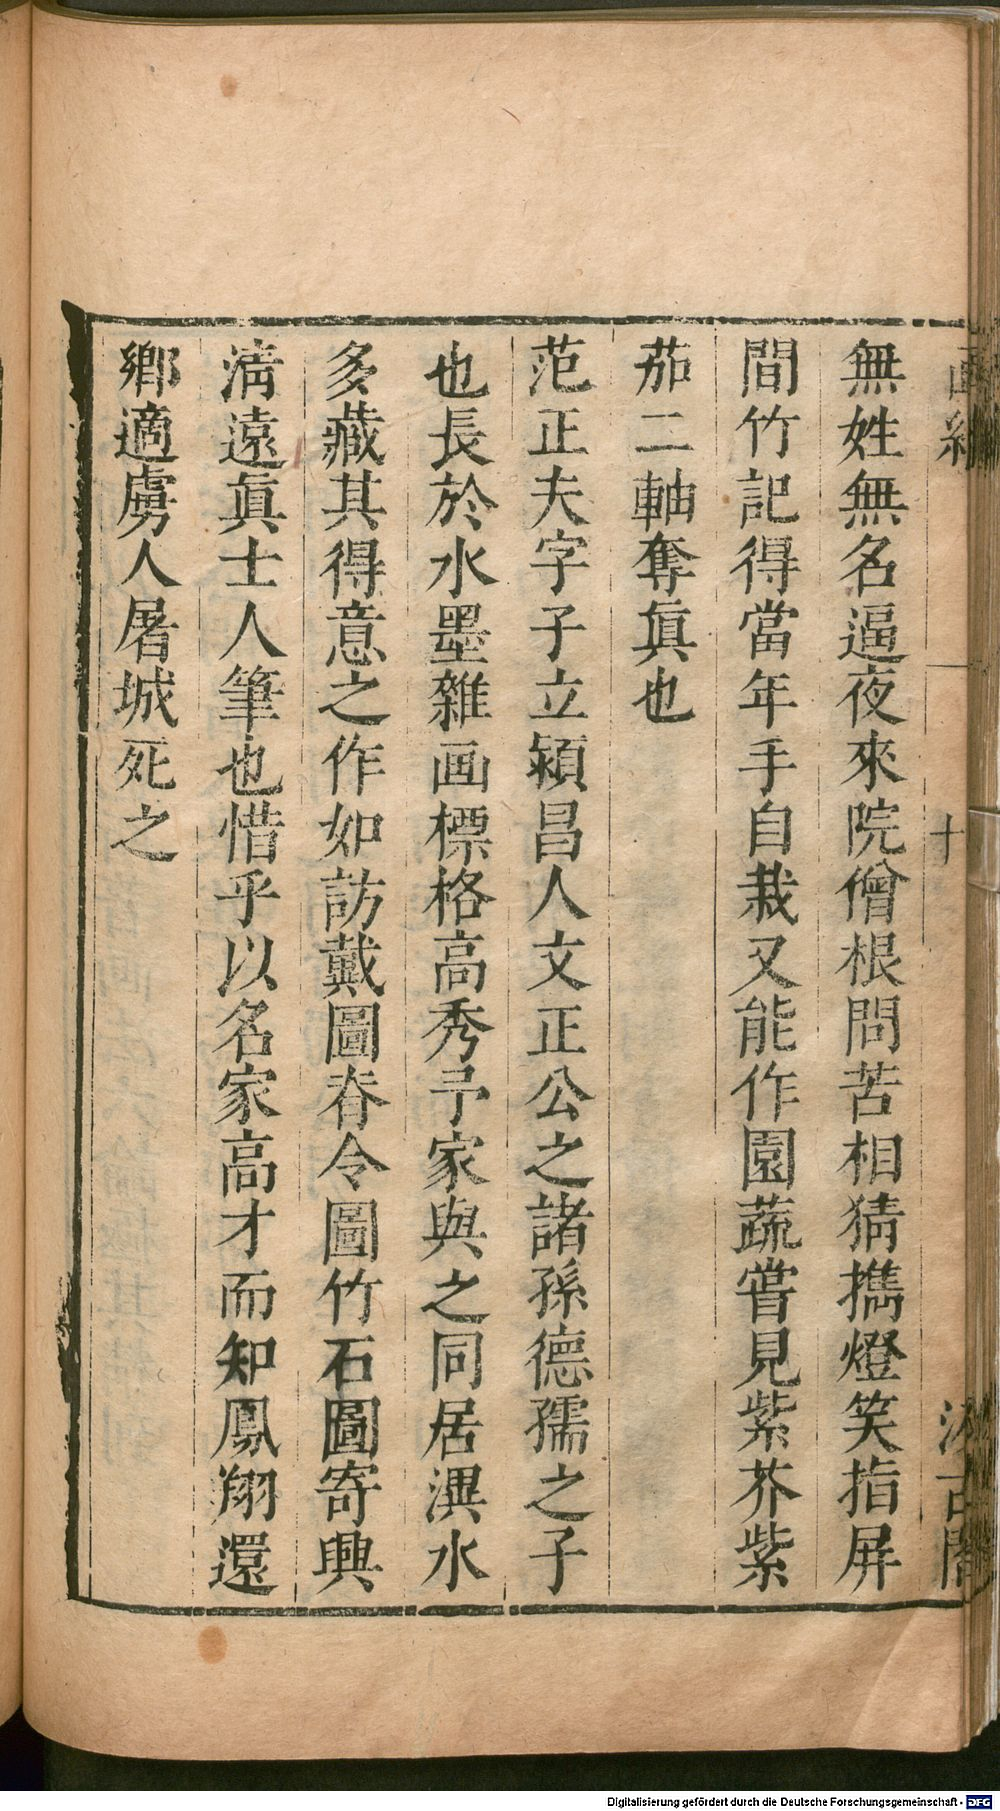 無姓無名逼夜來院僧根問苦相猜擕燈笑指屏
間竹記得當年手自栽又能作園蔬嘗見紫芥紫
茄二軸奪眞也
范正夫字子立潁昌人文正公之諸孫德孺之子
也長於水墨雜画標格高秀予家與之同居潩水
多藏其得意之作如訪戴圖脊令圖竹石圖寄興
淸遠眞士人筆也惜乎以名家高才而知鳳翔還
鄉適虜人屠城死之
十
Digitalisierung gefördert durch die Deutsche Forschungsgemeinschaft - DFG